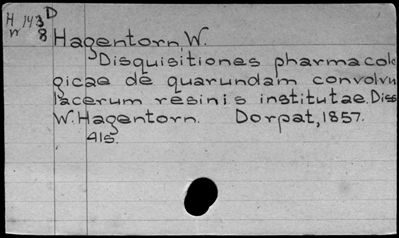 H 143 D
w 8
Hagentorn, W.
Disquisitiones pharmacolo
gicae de quarundam convolvu
lacerum resinis institutae. Diss
W. Hagentorn. Dorpat, 1857.
41s.